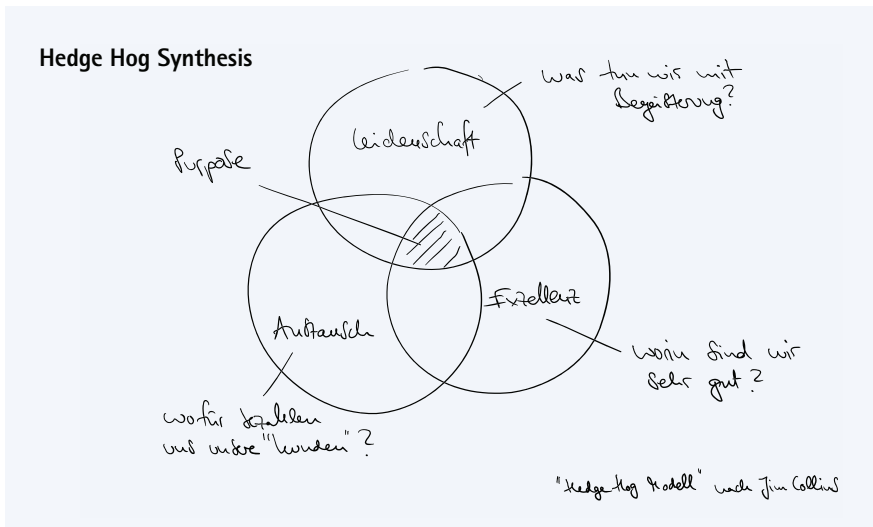 Hedge Hog Synthesis
was tun wir mit
Begeisterung?
Leidenschaft
Purpose
Exzellenz
Austausch
worin sind wir
sehr gut?
wofür bezahlen
uns unsere "Kunden"?
"Hedge Hog Modell" nach Jim Collins